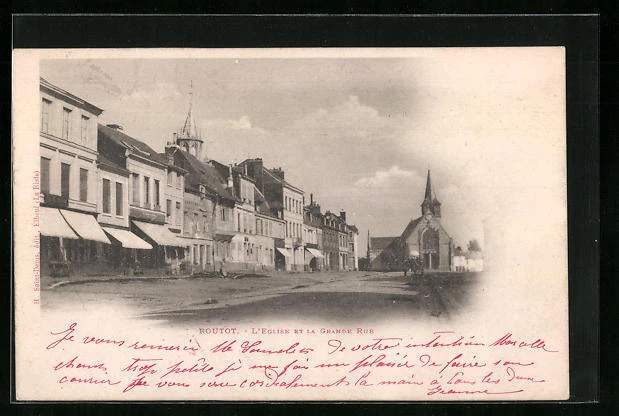 H. Saint-Denis, édit., Elbeuf (La Ristel)
ROUTOT. - L'EGLISE ET LA GRANDE RUE
Je vous remercie de votre intention
chaud, trop je me fais un plaisir de faire son
courrier je vous serre cordialement la main à tous les deux
Jeanne